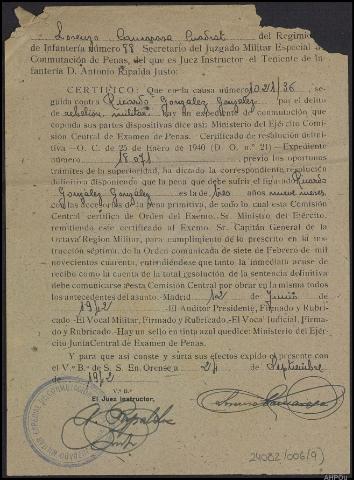 Lorenzo Camarasa Cuadrat del Regimien
de Infantería número 88 Secretario del Juzgado Militar Especial
Conmutación de Penas, del que es Juez Instructor el Teniente de
Infantería D. Antonio Ripalda Justo:
CERTIFICO: Que en la causa número 1.021/36, se-
guida contra Ricardo González González por el delito
de rebelión militar hay un expediente de conmutación que
copiada sus partes dispositivas dice así: Ministerio del Ejército Comi-
sión Central de Examen de Penas.- Certificado de resolución defini-
tiva.-O. C. de 25 de Enero de 1940 (D. O. n.º 21).-Expediente
número 18.071, previo los oportunos
trámites de la superioridad, ha dictado la correspondiente resolución
definitiva disponiendo que la pena que debe sufrir el citado Ricardo
González González es la de dos años nueve meses
con las accesorias de la pena primitiva, de todo lo cual esta Comisión
Central certifica de Orden del Excmo. Sr. Ministro del Ejército,
remitiendo este certificado al Excmo. Sr. Capitán General de la
Octava Región Militar, para cumplimiento de lo prescrito en la ins-
trucción séptima de la Orden comunicada de siete de Febrero de mil
novecientos cuarenta, entendiéndose que tanto la inmediata acuse de
recibo como la cuenta de la total resolución de la sentencia definitiva
debe comunicarse a esta Comisión Central por obrar en la misma todos
los antecedentes del asunto.-Madrid 12 de Junio de
1942.-El Auditor Presidente, Firmado y Rubrica-
do.-El Vocal Militar, Firmado y Rubricado.-El Vocal Judicial, Firma-
do y Rubricado.-Hay un sello en tinta azul que dice: Ministerio del Ejér-
cito Junta Central de Examen de Penas.
Y para que así conste y surta sus efectos expido el presente con
el V.º B.º de S. S. En Orense a 24 de Septiembre
de 1942
V.º B.º
El Juez Instructor,
A. Ripalda
Lorenzo Camarasa
24082/006(9)
AHPOu